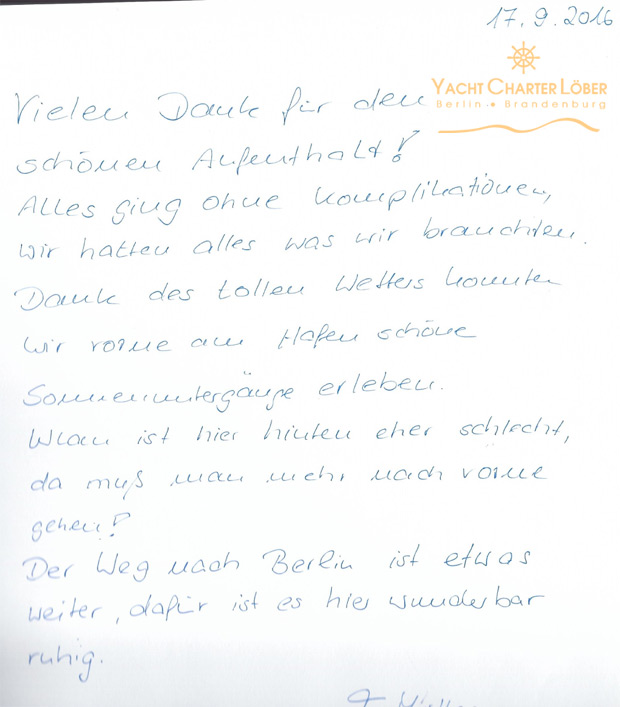 17.9.2016
YACHT CHARTER LÖBER
Berlin • Brandenburg
Vielen Dank für den
schönen Aufenthalt!
Alles ging ohne Komplikationen,
wir hatten alles was wir brauchten.
Dank des tollen Wetters konnten
wir vorne am Hafen schöne
Sonnenuntergänge erleben.
Wlan ist hier hinten eher schlecht,
da muß man mehr nach vorne
gehen!
Der Weg nach Berlin ist etwas
weiter, dafür ist es hier wunderbar
ruhig.